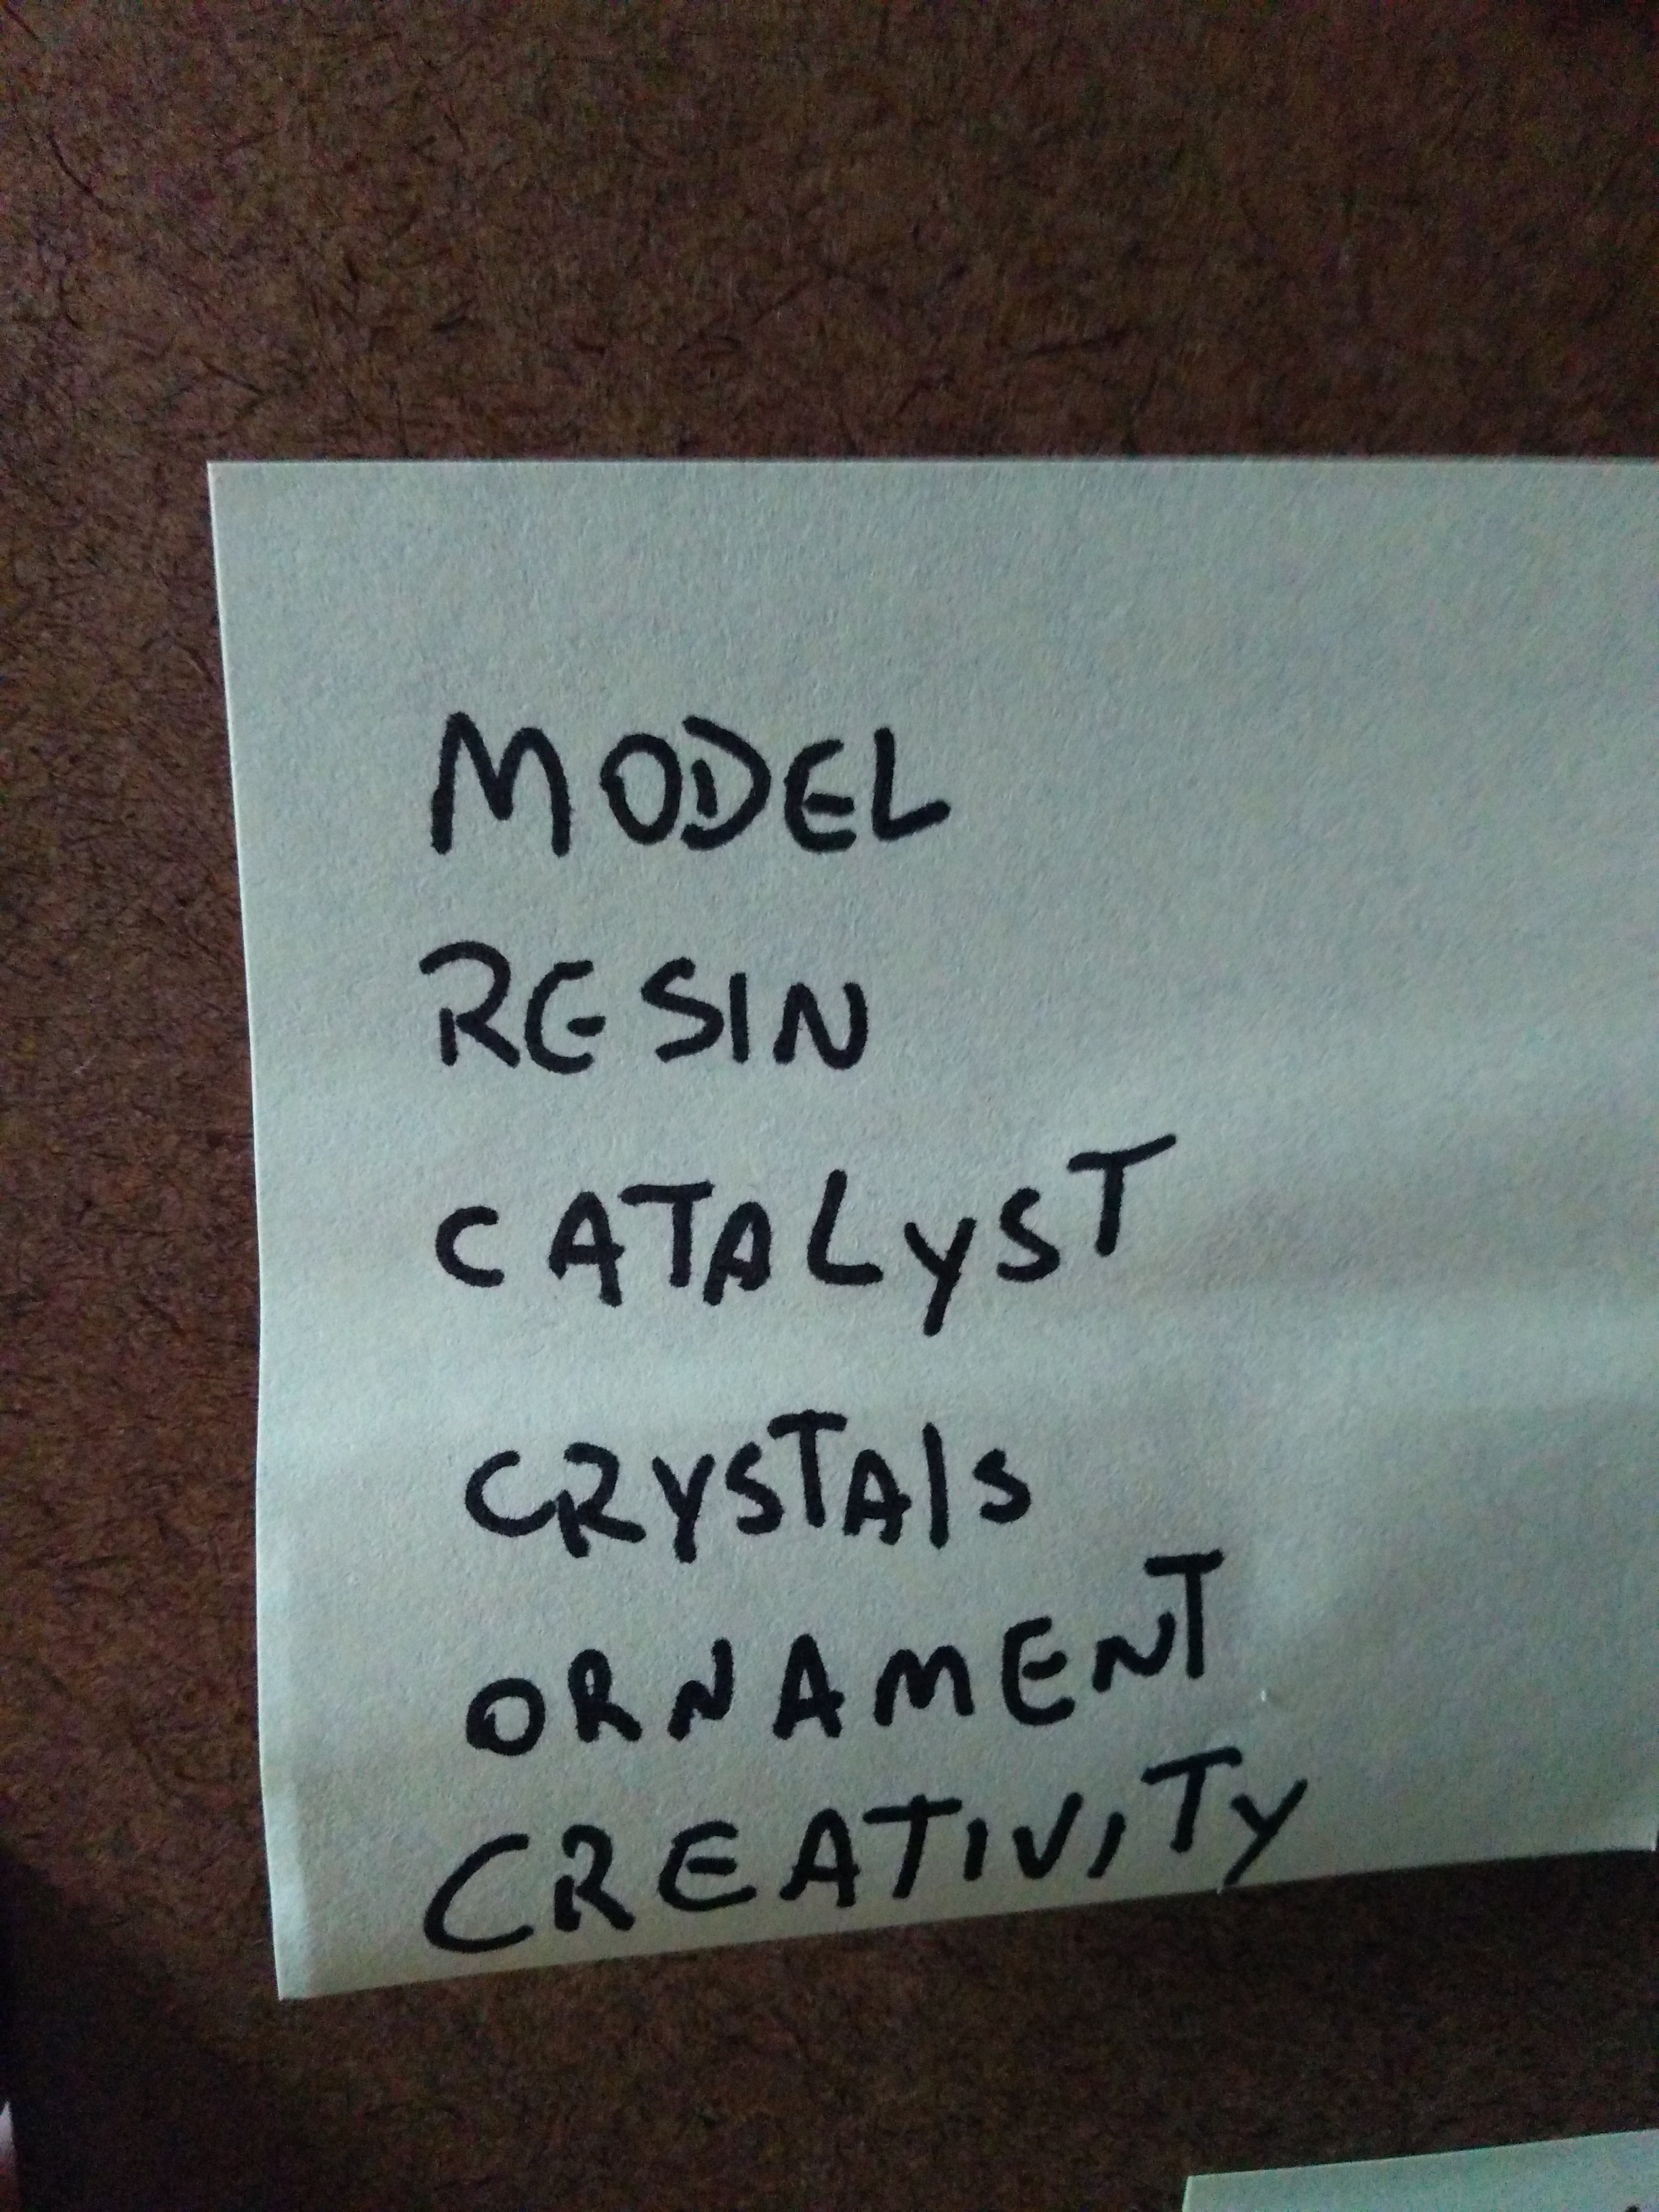 MODEL
RESIN
CATALYST
CRYSTAlS
ORNAMENT
CREATIVITY